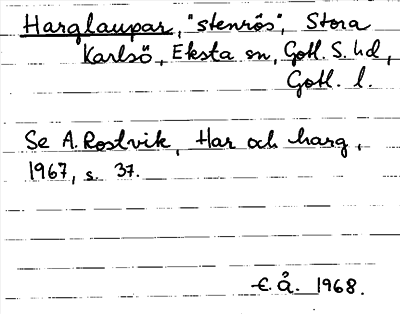 Harglaupar, "stenrös", Stora
Karlsö, Eksta sn, Gotl. S. hd,
Gotl. l.
Se A. Rostvik, Har och harg,
1967, s. 37.
E. Å. 1968.